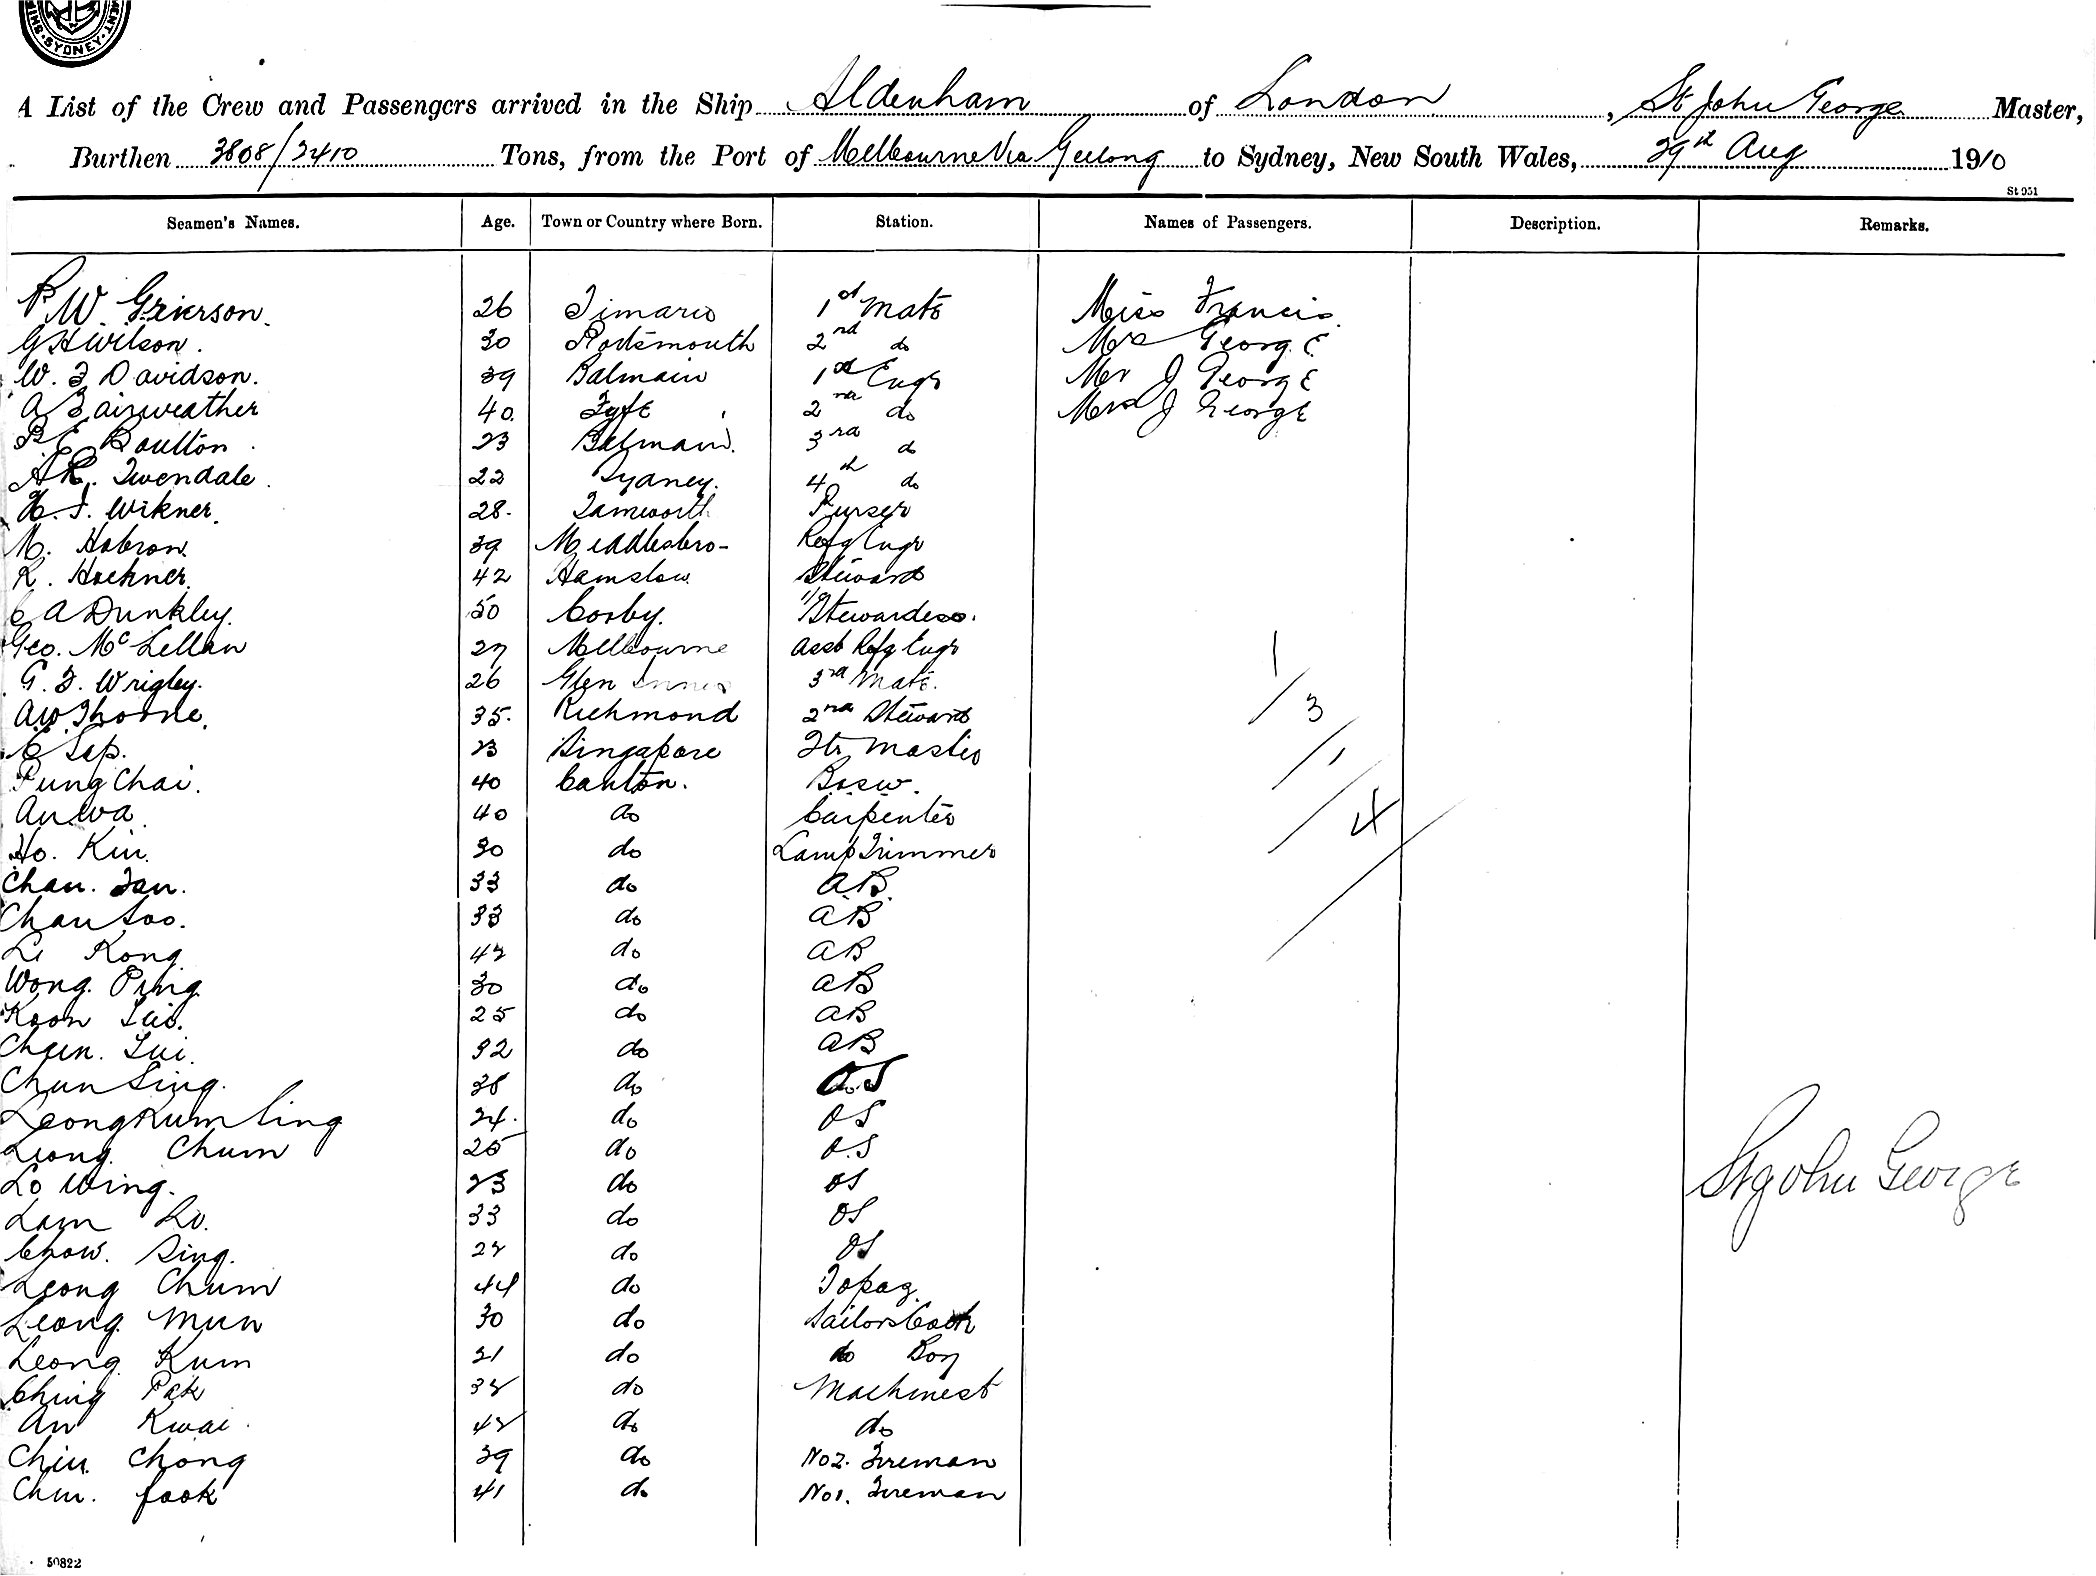 SYDNEY
A List of the Crew and Passengers arrived in the Ship Aldenham of London, St John George Master,
Burthen 3808/2410 Tons, from the Port of Melbourne Via Geelong to Sydney, New South Wales, 29th Aug 1910
St 951
Seamen's Names. Age. Town or Country where Born. Station. Names of Passengers. Description. Remarks.
P. W. Grierson. 26 Timaru 1st Mate Miss Francis.
G H Wilson. 30 Portsmouth 2nd do Mrs George
W. F Davidson. 39 Balmain 1st Engr Mr J George
A Fairweather 40 Fyfe 2nd do Mrs J George
P. E Boulton 23 Balmain. 3rd do
A R. Twendale. 22 Sydney. 4th do
H. J. Wikner. 28. Tamworth Purser
M. Hobron. 39 Middlesbro- Refg Engr
R. Hockner. 42 Hamslow Steward
C A Dunkley. 50 Corby. Stewardess.
Geo. McLellan 27 Melbourne Asst Refg Engr 1
G. F. Wrigley. 26 Glen Innes 3rd Mate. / 3
A W Thorne. 35. Richmond 2nd Steward
C Sep. 23 Singapore Qtr Master / 1
Pung Chai. 40 Canton. Bosw.
Au Wa. 40 do Carpenter / 4
Ho. Kin. 30 do Lamp Trimmer
Chan. Tan. 33 do AB.
Chan Soo. 33 do AB
Li Kong 42 do AB
Wong Ping 30 do AB
Koon Lui. 25 do AB
Chun. Lui. 32 do AB
Chun Sing. 38 do O.S
Leong Kum Sing 24. do OS
Leong Chum 25 do O.S
Lo Wing. 23 do OS
Lam Lo. 33 do OS
St John George
Chow. Sing. 22 do OS
Leong Chum 44 do Topaz
Leong Mun 30 do Sailors Cook
Leong Kum 21 do do Boy
Ching Pak 32 do Machinest
Au Kwai 42 do do
Chiu Chong 39 do No 2. Fireman
Chiu. Fook 41 do No 1. Fireman
50822